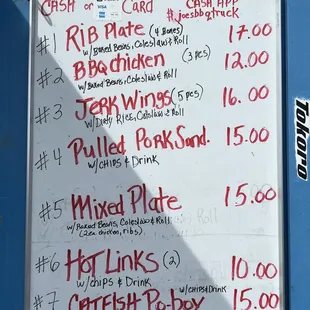 CASH or CARD
CASH APP
#joesbbqtruck
#1 RiB PlATE (4 Bones) 17.00
w/BAKED BEANS, ColeSlAW & Roll
#2 BBQ chicken (3 pcs) 12.00
w/BAKED BEANS, ColeSlAW & Roll
#3 JERK WiNgS (5 pcs) 16.00
w/DiRTy RicE, ColeSlAW & Roll
#4 Pulled PoRK SAnd. 15.00
w/CHiPS & DRiNK
#5 MixEd PlATE 15.00
w/BAKED BEANS, ColeSlAW & Roll
(2 ea. chicken, ribs)
#6 HoT LiNKS (2) 10.00
w/chips & DRiNK
#7 CATFISH Po-boy w/CHiPS & DRiNK 15.00
Tokoro